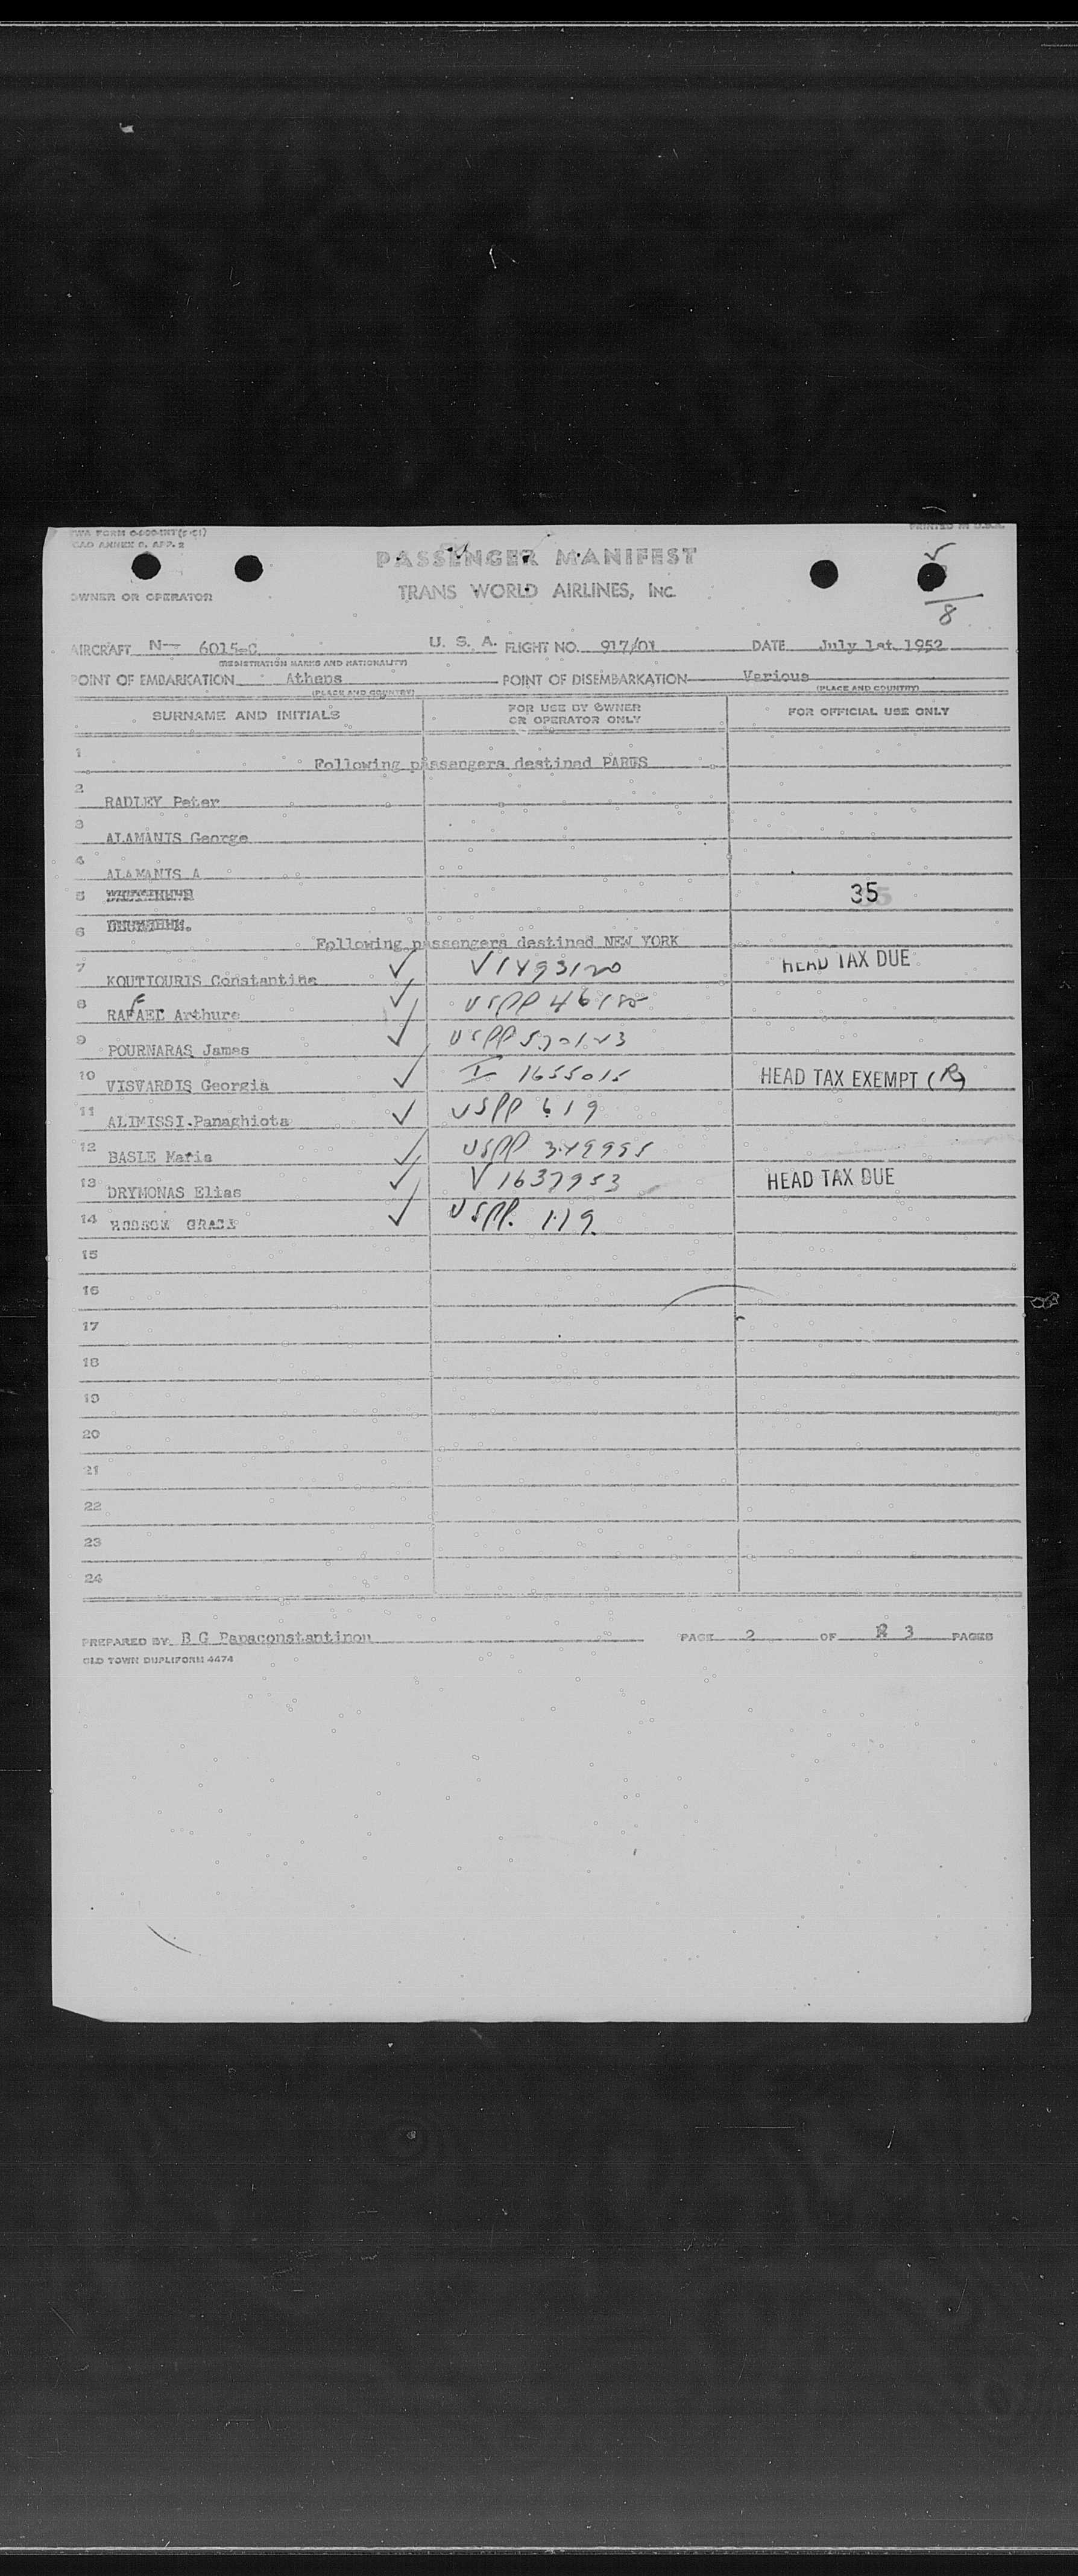 TWA FORM
PRINTED IN U.S.A.
ICAO ANNEX 9, APP. 2
PASSENGER MANIFEST
OWNER OR OPERATOR
TRANS WORLD AIRLINES, INC.
5/8
AIRCRAFT N— 6015-C U. S. A. FLIGHT NO. 917/01 DATE July 1st 1952
(REGISTRATION MARKS AND NATIONALITY)
POINT OF EMBARKATION Athens POINT OF DISEMBARKATION Various
(PLACE AND COUNTRY) (PLACE AND COUNTRY)
SURNAME AND INITIALS FOR USE BY OWNER OR OPERATOR ONLY FOR OFFICIAL USE ONLY
1 Following passengers destined PARIS
2 RADLEY Peter
3 ALAMANIS George
4 ALAMANIS A
5 35
6 Following passengers destined NEW YORK
7 KOUTIOURIS Constantine ✓ V1493120 HEAD TAX DUE
8 RAFAEL Arthure ✓ USPP
9 POURNARAS James ✓ USPP
10 VISVARDIS Georgia ✓ I 1655015 HEAD TAX EXEMPT (R)
11 ALIMISSI.Panaghiota ✓ USPP 619
12 BASLE Maria ✓ USPP 349995
13 DRYMONAS Elias ✓ V1637953 HEAD TAX DUE
14 HODSON GRACE ✓ USPP. 119.
15
16
17
18
19
20
21
22
23
24
PREPARED BY B G Papaconstantinou PAGE 2 OF 3 PAGES
OLD TOWN DUPLIFORM 4474